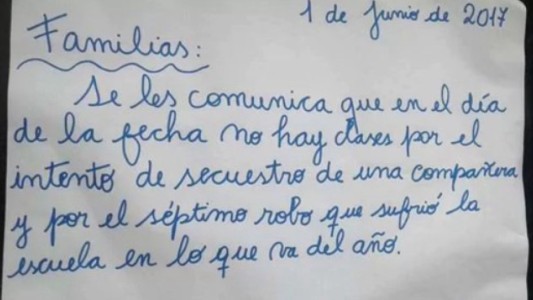 1 de Junio de 2017
Familias:
Se les comunica que en el día
de la fecha no hay clases por el
intento de secuestro de una compañera
y por el séptimo robo que sufrió la
escuela en lo que va del año.